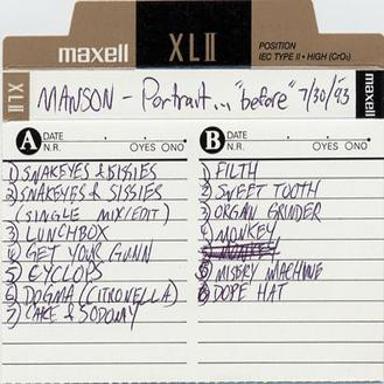 maxell XLII POSITION
IEC TYPE II • HIGH (CrO₂)
XLII MANSON - Portrait... "before" 7/30/'93 maxell
A DATE
N.R. YES NO
1) SNAKEYES & SISSIES
2) SNAKEYES & SISSIES
(SINGLE MIX/EDIT)
3) LUNCHBOX
4) GET YOUR GUNN
5) CYCLOPS
6) DOGMA (CITRONELLA)
7) CAKE & SODOMY
B DATE
N.R. YES NO
1) FILTH
2) SWEET TOOTH
3) ORGAN GRINDER
4) MONKEY
5) MISERY MACHINE
6) DOPE HAT